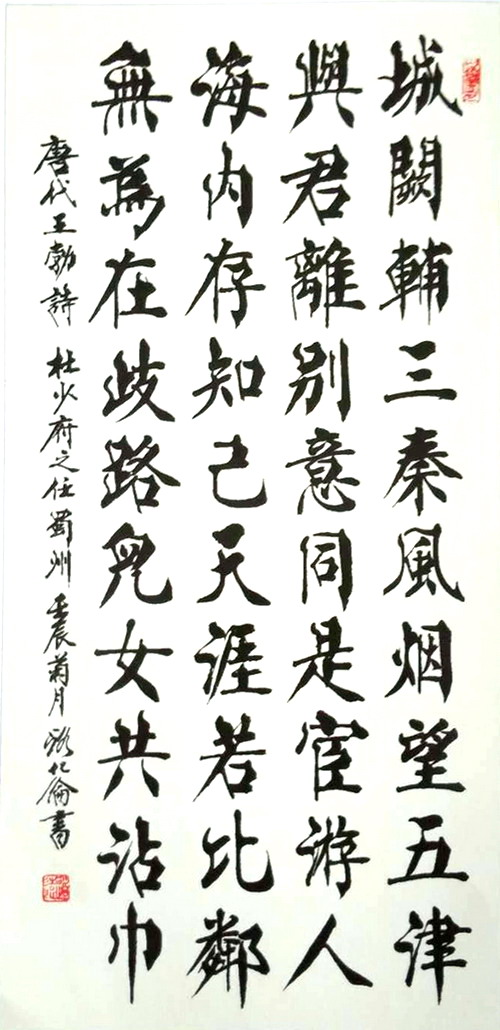 城闕輔三秦風烟望五津
與君離别意同是宦游人
海内存知己天涯若比鄰
無爲在歧路兒女共沾巾
唐代王勃詩 杜少府之任蜀州 壬辰菊月 書